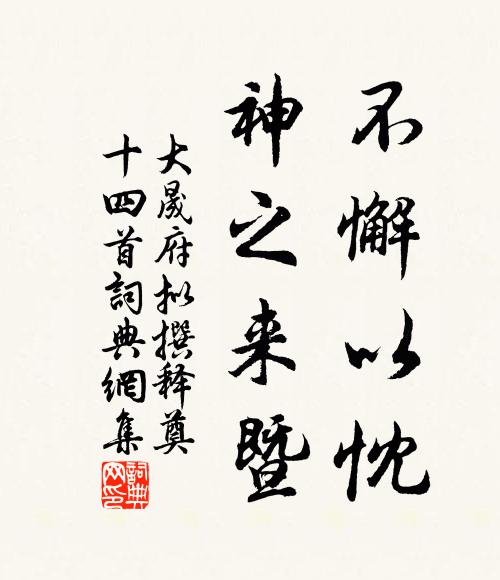 不懈以忱
神之来暨
大晟府拟撰释奠
十四首詞典網集
詞典网印